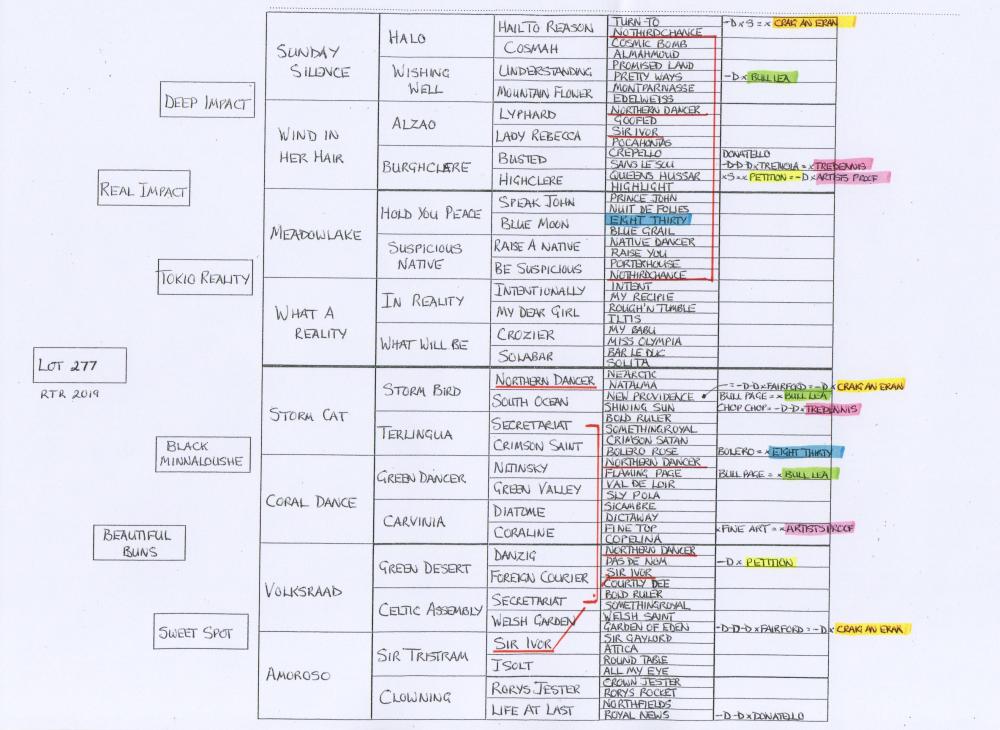 LOT 277
RTR 2019
REAL IMPACT
BEAUTIFUL BUNS
DEEP IMPACT
TOKIO REALITY
BLACK MINNALOUSHE
SWEET SPOT
SUNDAY SILENCE
WIND IN HER HAIR
MEADOWLAKE
WHAT A REALITY
STORM CAT
CORAL DANCE
VOLKSRAAD
AMOROSO
HALO
WISHING WELL
ALZAO
BURGHCLERE
HOLD YOU PEACE
SUSPICIOUS NATIVE
IN REALITY
WHAT WILL BE
STORM BIRD
TERLINGUA
GREEN DANCER
CARVINIA
GREEN DESERT
CELTIC ASSEMBLY
SIR TRISTRAM
CLOWNING
HAIL TO REASON
COSMAH
UNDERSTANDING
MOUNTAIN FLOWER
LYPHARD
LADY REBECCA
BUSTED
HIGHCLERE
SPEAK JOHN
BLUE MOON
RAISE A NATIVE
BE SUSPICIOUS
INTENTIONALLY
MY DEAR GIRL
CROZIER
SOLABAR
NORTHERN DANCER
SOUTH OCEAN
SECRETARIAT
CRIMSON SAINT
NIJINSKY
GREEN VALLEY
DIATOME
CORALINE
DANZIG
FOREIGN COURIER
SECRETARIAT
WELSH GARDEN
SIR IVOR
ISOLT
RORYS JESTER
LIFE AT LAST
TURN-TO
NOTHIRDCHANCE
COSMIC BOMB
ALMAHMOUD
PROMISED LAND
PRETTY WAYS
MONTPARNASSE
EDELWEISS
NORTHERN DANCER
GOOFED
SIR IVOR
POCAHONTAS
CREPELLO
SANS LE SOU
QUEENS HUSSAR
HIGHLIGHT
PRINCE JOHN
NUIT DE FOLIES
EIGHT THIRTY
BLUE GRAIL
NATIVE DANCER
RAISE YOU
PORTERHOUSE
NOTHIRDCHANCE
INTENT
MY RECIPIE
ROUGH'N TUMBLE
ILTIS
MY BABU
MISS OLYMPIA
BAR LE DUC
SOLITA
NEARCTIC
NATALMA
NEW PROVIDENCE
SHINING SUN
BOLD RULER
SOMETHINGROYAL
CRIMSON SATAN
BOLERO ROSE
NORTHERN DANCER
FLAMING PAGE
VAL DE LOIR
SLY POLA
SICAMBRE
DICTAWAY
FINE TOP
COPELINA
NORTHERN DANCER
PAS DE NOM
SIR IVOR
COURTLY DEE
BOLD RULER
SOMETHINGROYAL
WELSH SAINT
GARDEN OF EDEN
SIR GAYLORD
ATTICA
ROUND TABLE
ALL MY EYE
CROWN JESTER
RORYS ROCKET
NORTHFIELDS
ROYAL NEWS
-D x S = x CRAIG AN ERAN
-D x BULL LEA
DONATELLO
-D-D-D x TREMOLA = x TREDENNIS
x S = x PETITION = -D x ARTISTS PROOF
= -D-D x FAIRFORD = -D x CRAIG AN ERAN
BULL PAGE = x BULL LEA
CHOP CHOP = -D-D x TREDENNIS
BOLERO = x EIGHT THIRTY
BULL PAGE = x BULL LEA
x FINE ART = x ARTISTS PROOF
-D x PETITION
-D-D-D x FAIRFORD = -D x CRAIG AN ERAN
-D-D x DONATELLO